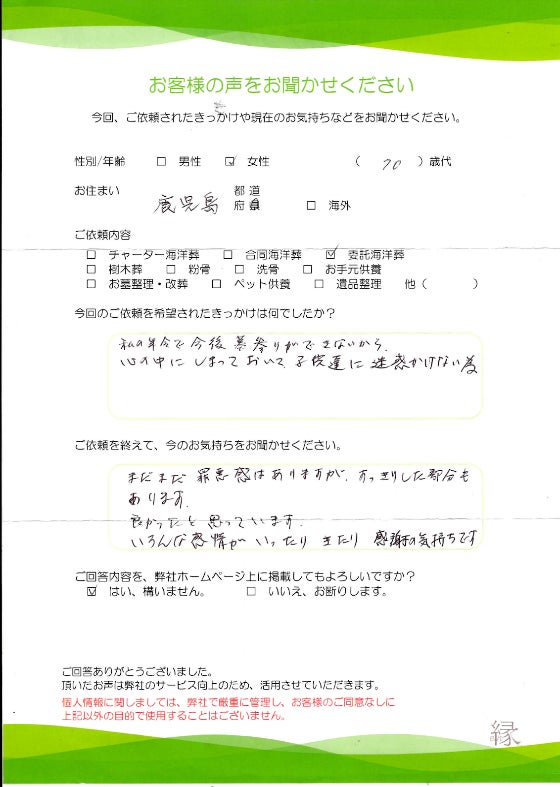 お客様の声をお聞かせください
今回、ご依頼されたきっかけや現在のお気持ちなどをお聞かせください。
性別/年齢 □ 男性 ☑ 女性 ( 70 )歳代
お住まい 鹿児島 都 道 府 県 □ 海外
ご依頼内容
□ チャーター海洋葬 □ 合同海洋葬 ☑ 委託海洋葬
□ 樹木葬 □ 粉骨 □ 洗骨 □ お手元供養
□ お墓整理・改葬 □ ペット供養 □ 遺品整理 他( )
今回のご依頼を希望されたきっかけは何でしたか?
私の年令で今後墓参りができないから、
心の中にしまっておいて、子供達に迷惑かけない為
ご依頼を終えて、今のお気持ちをお聞かせください。
まだまだ罪悪感はありますが、すっきりした部分も
あります。
良かったと思っています。
いろんな感情がいったりきたり 感謝の気持ちです
ご回答内容を、弊社ホームページ上に掲載してもよろしいですか?
☑ はい、構いません。 □ いいえ、お断りします。
ご回答ありがとうございました。
頂いたお声は弊社のサービス向上のため、活用させていただきます。
個人情報に関しましては、弊社で厳重に管理し、お客様のご同意なしに
上記以外の目的で使用することはございません。
縁